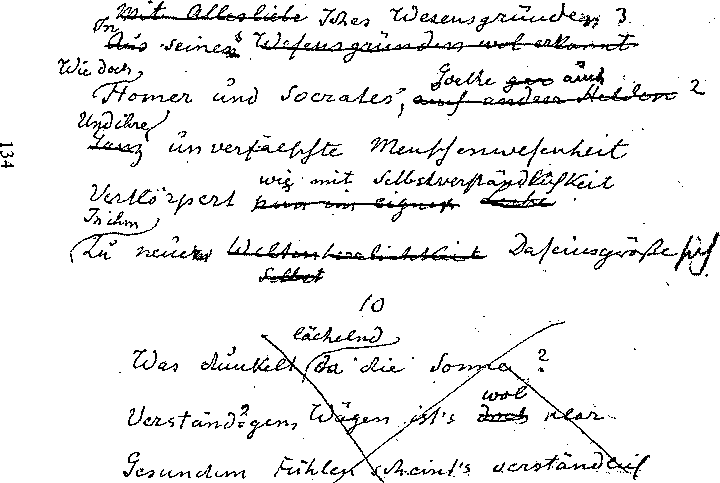 Mit Allesliebe Ihres Wesensgrundes 3
In
Aus seines Wesensgründen wol erkannt
Wie doch Goethe gar auch
Homer und Socrates, auf andern Helden 2
Und ihre
Ganz unverfälschte Menschenwesenheit
wie mit Selbstverständlichkeit
Verkörpert nun im eignen
In ihm
Zu neuer Weltenherrlichkeit Daseinsgröße sich
selbst
134
10
lächelnd
Was dunkelt, da die Sonne?
wol
Verständ'gem Wägen ist's doch klar
Gesundem Fühlen scheint's verständlich